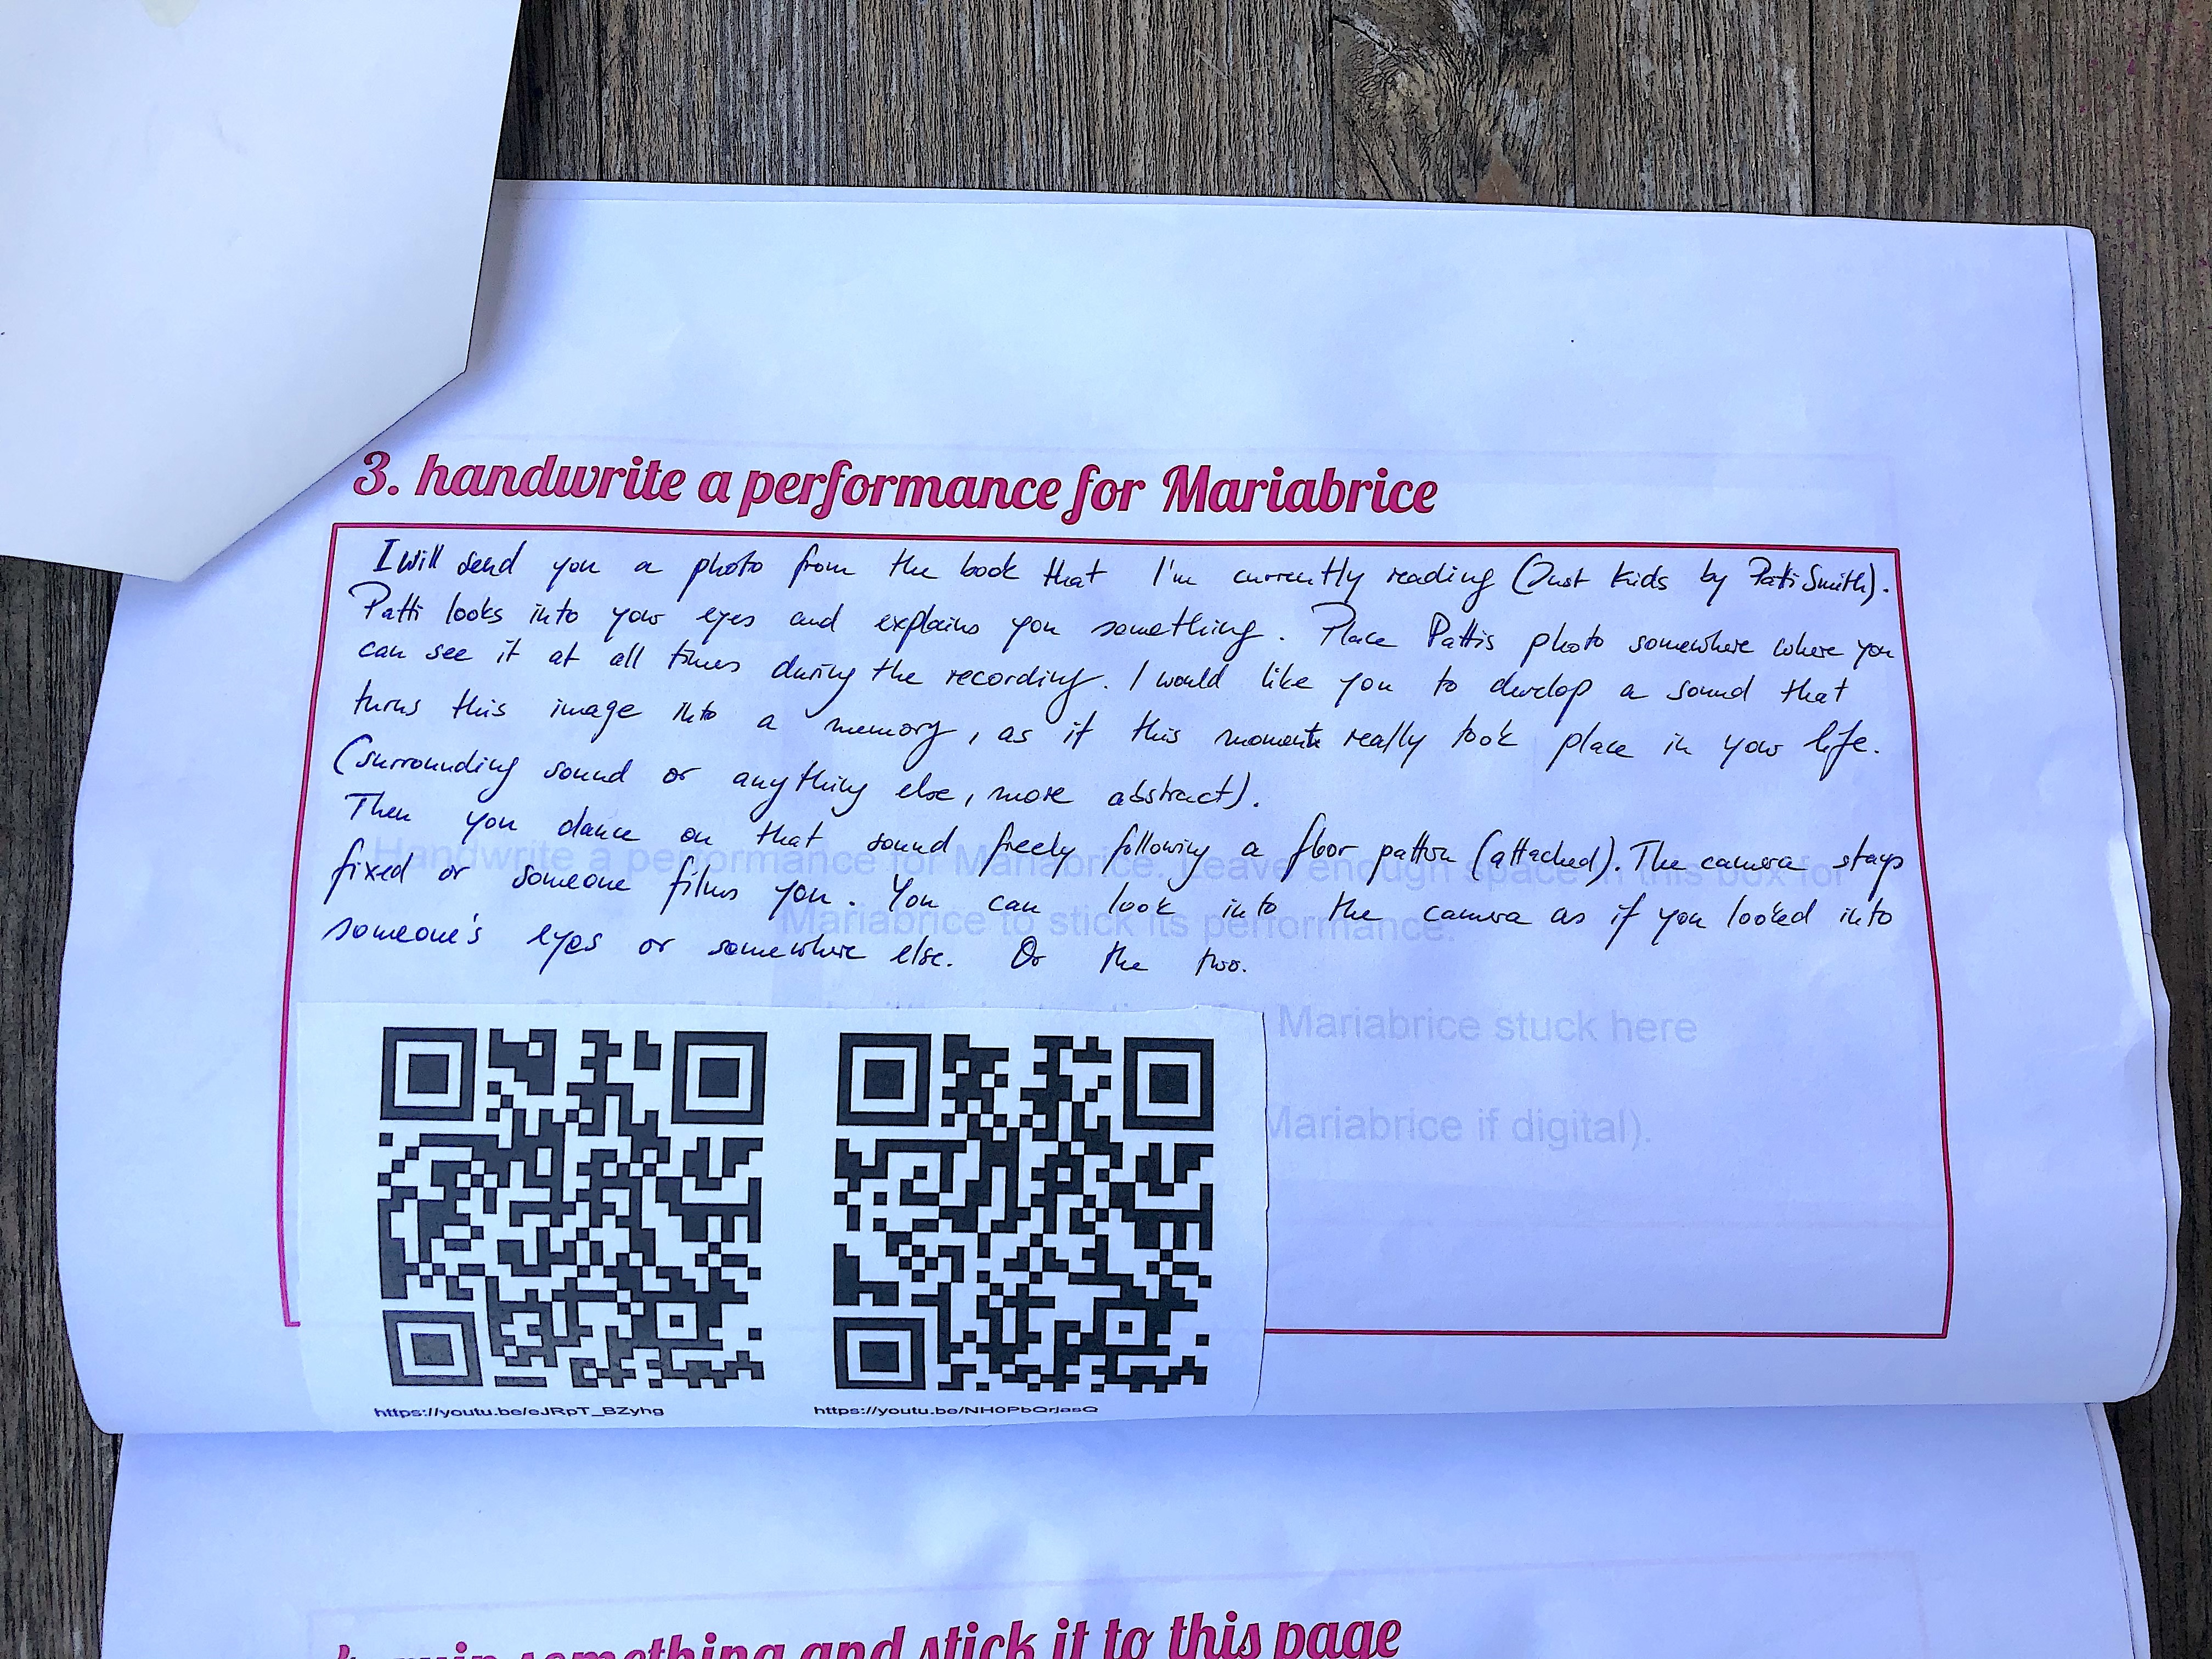 3. handwrite a performance for Mariabrice
I will send you a photo from the book that I'm currently reading (Just Kids by Patti Smith).
Patti looks into your eyes and explains you something. Place Pattis photo somewhere where you
can see it at all times during the recording. I would like you to develop a sound that
turns this image into a memory, as if this moment really took place in your life.
(surrounding sound or anything else, more abstract).
Then you dance on that sound freely following a floor pattern (attached). The camera stays
fixed or someone films you. You can look into the camera as if you looked into
someone's eyes or somewhere else. Or the two.
Handwrite a performance for Mariabrice. Leave enough space in this box for
Mariabrice to stick its performance.
Mariabrice stuck here
Mariabrice if digital).
https://youtu.be/eJRpT_BZyhg
https://youtu.be/NH0PbQrjasQ
something and stick it to this page